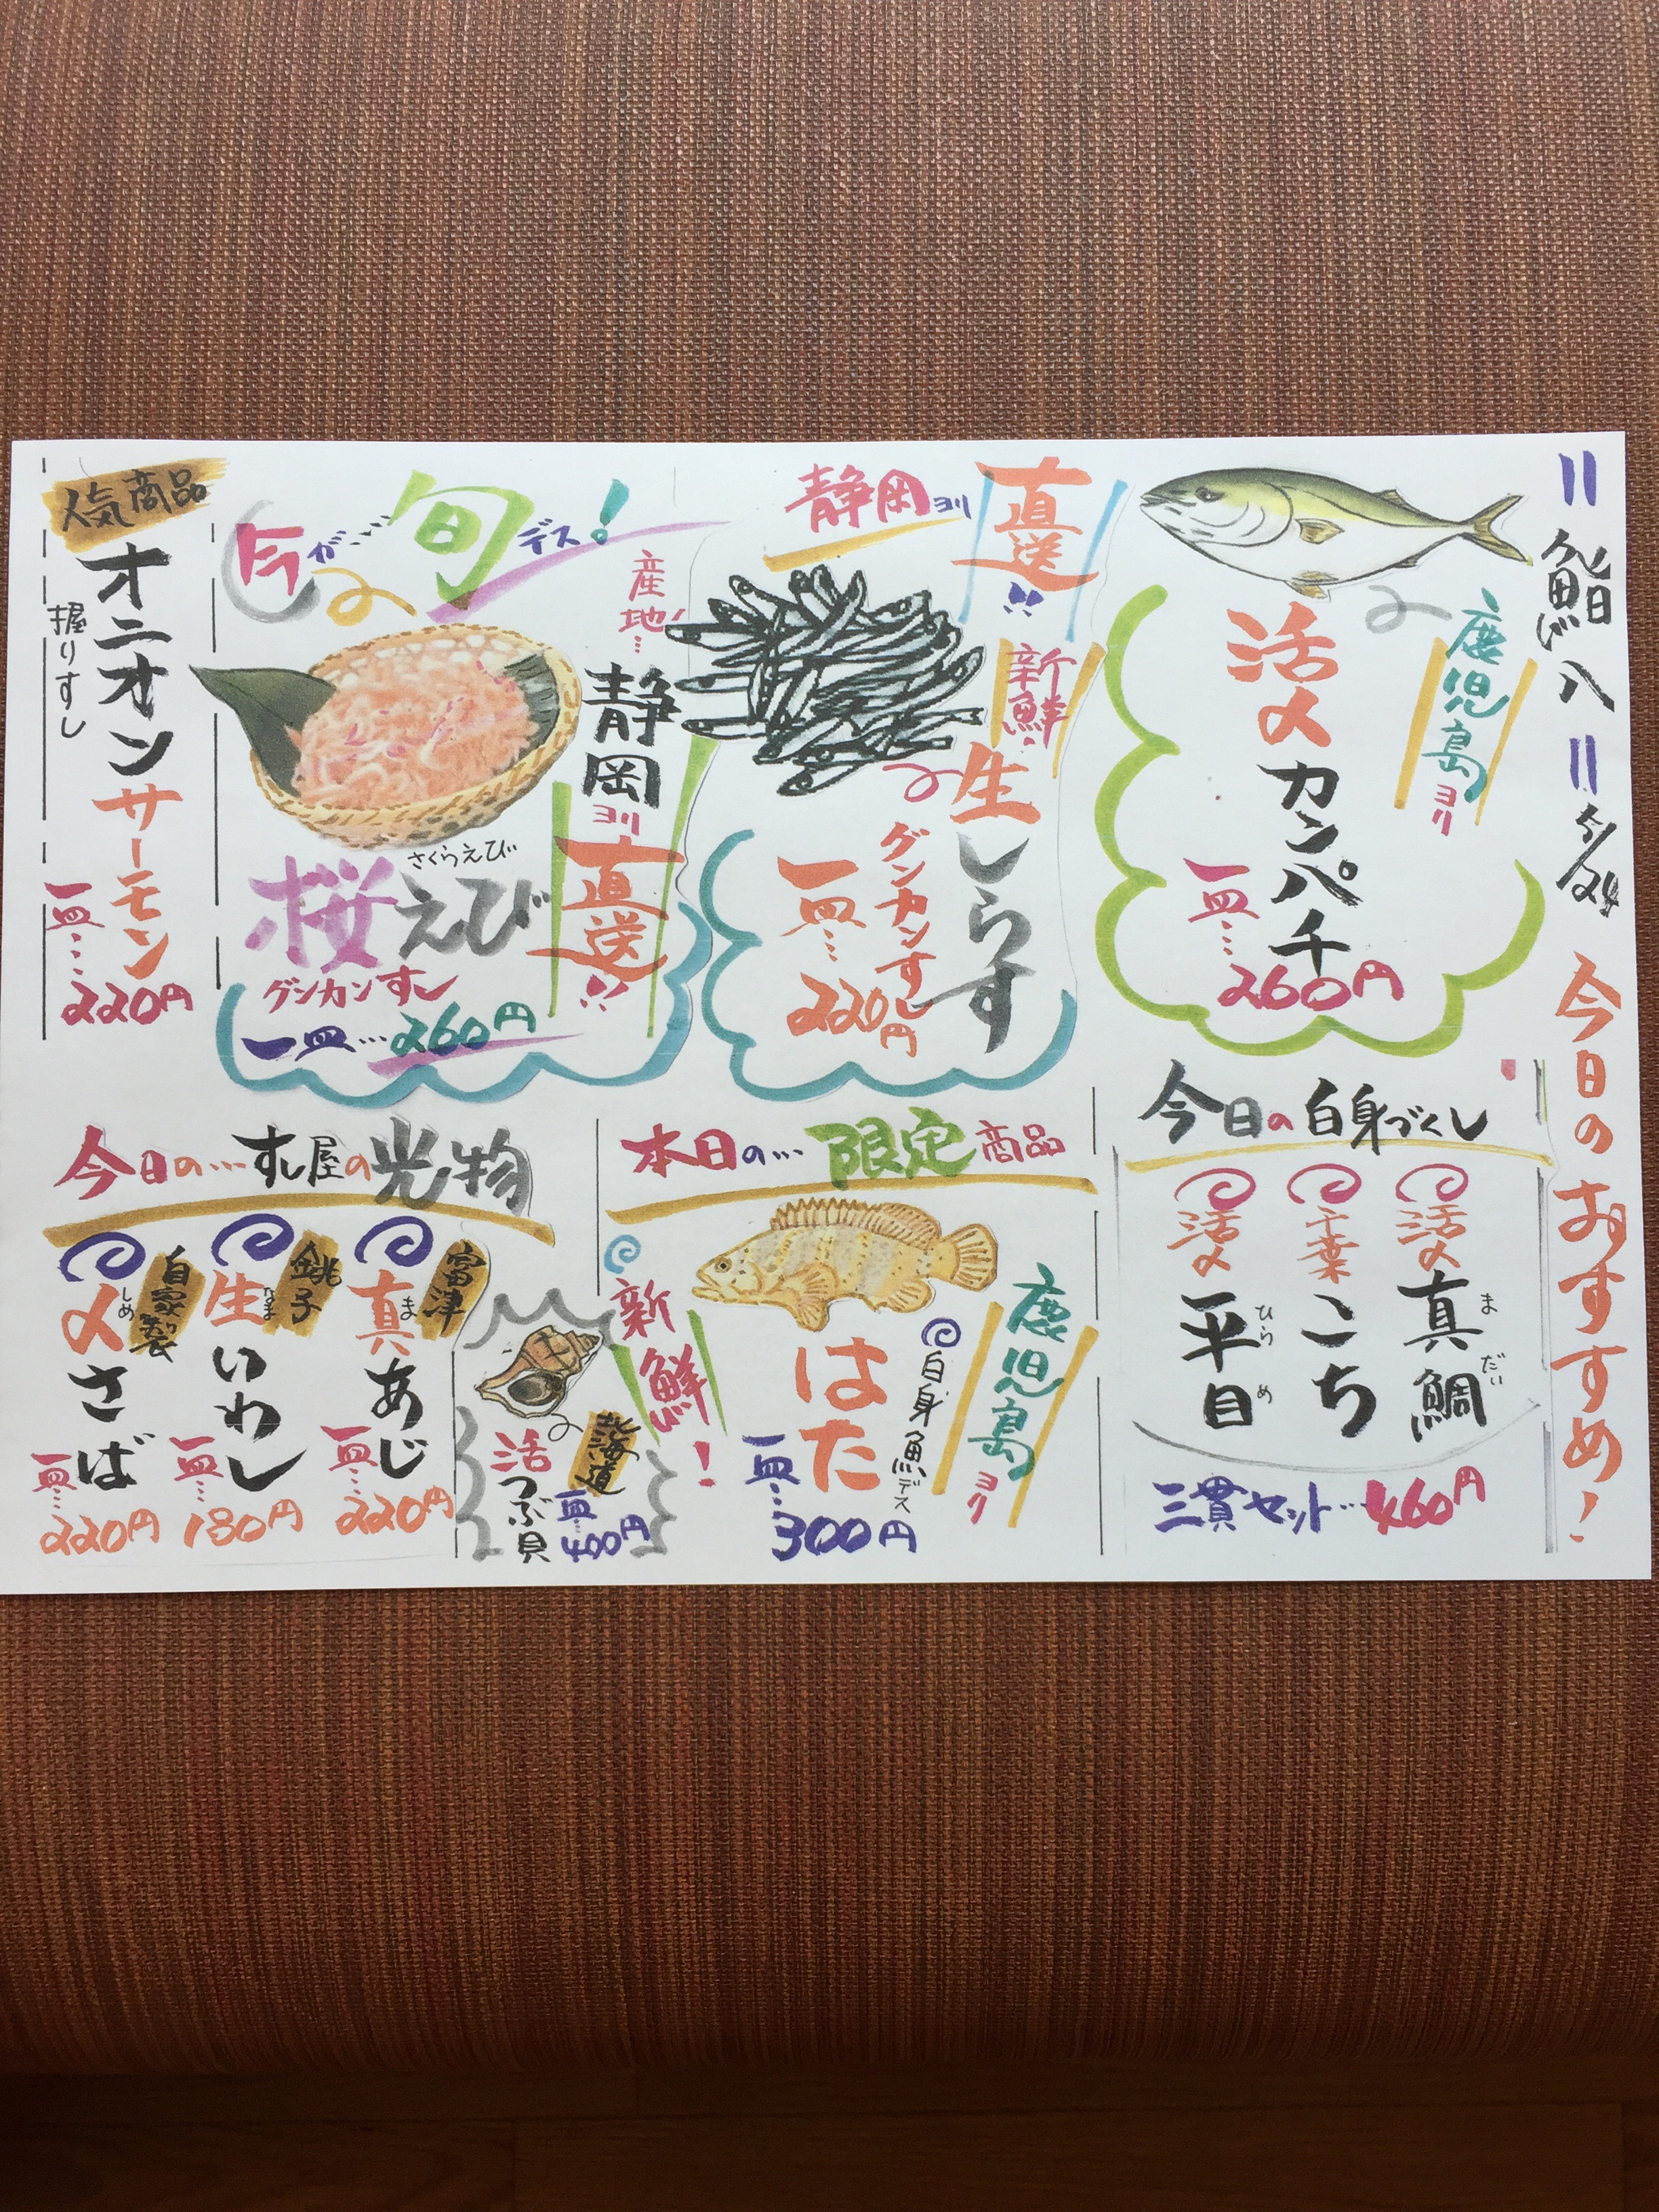 〃鮨八〃 5/24
今日のおすすめ！
鹿児島ヨリ
活〆カンパチ
一皿…260円
静岡ヨリ
直送!!
新鮮
生しらす
グンカンすし
一皿…220円
今が…旬デス！
産地…
静岡ヨリ
直送!!
さくらえび
桜えび
グンカンすし
一皿…260円
人気商品
オニオンサーモン
握りすし
一皿…220円
今日の白身づくし
活〆真鯛
まだい
千葉こち
活〆平目
ひらめ
三貫セット…460円
本日の…限定商品
鹿児島ヨリ
白身魚デス
はた
一皿…300円
新鮮！
北海道
活つぶ貝
一皿…400円
今日の…すし屋の光物
富津
真あじ
ま
一皿…220円
銚子
生いわし
なま
一皿…180円
自家製
〆さば
しめ
一皿…220円